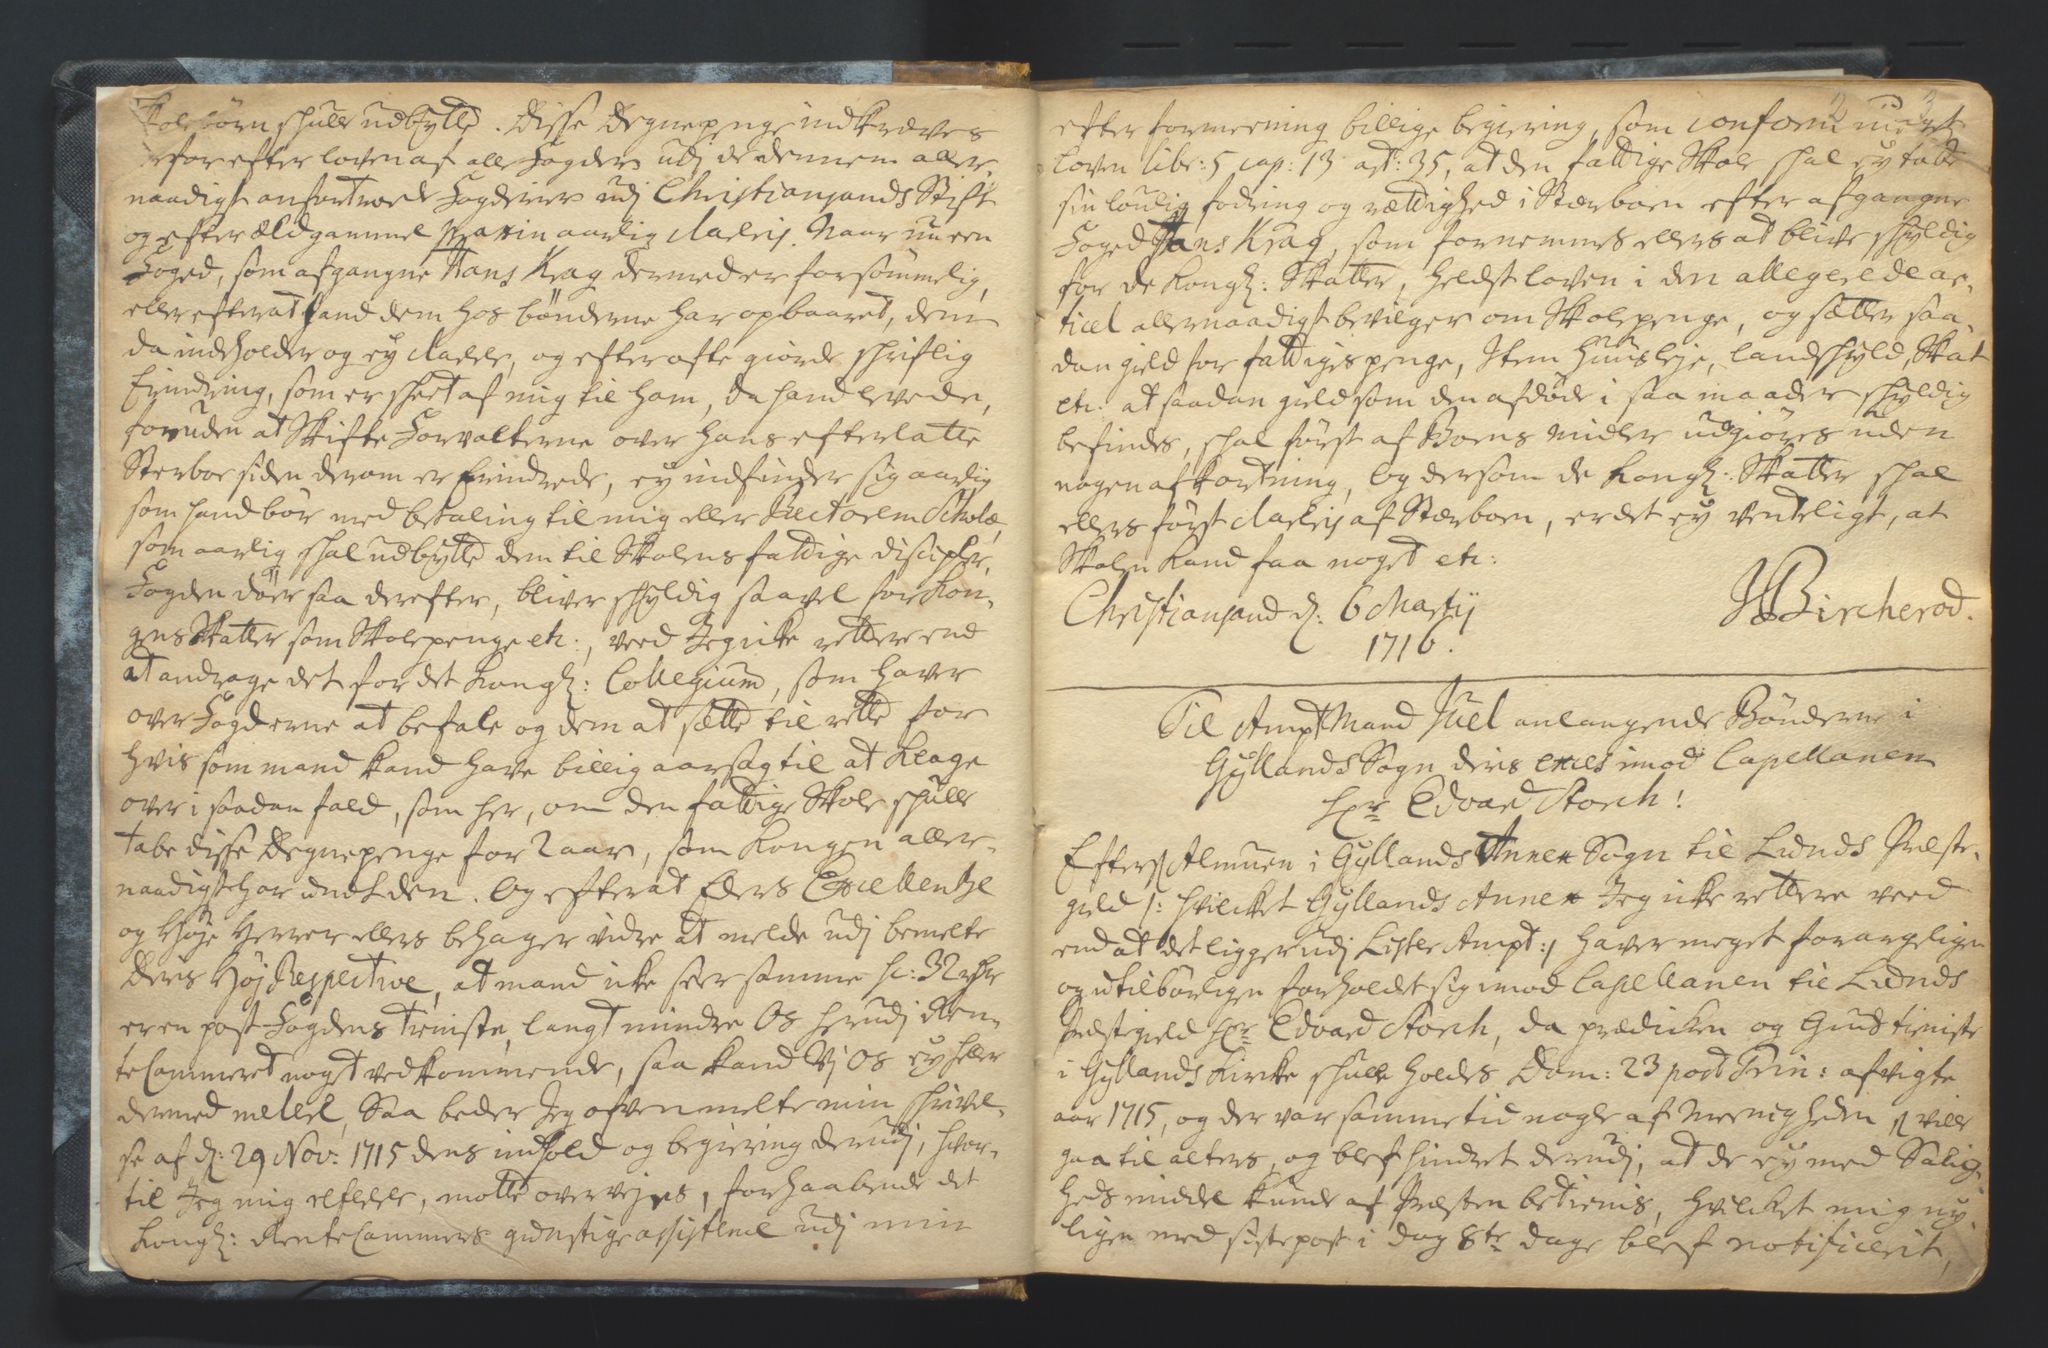 Skolebørn skulle udbytte. Disse Degnepenge indkræves
derfor efter loven af alle Fogder udj de dennem aller-
naadigst anfortroede Fogderier udj Christiansands Stift
og efter ældgammel Maneer aarlig clareris. Naar nu een
Foged, som afgangne Hans Krag dermed er forsømmelig,
eller efter at hand dem hos bønderne har opbaaret, dem
da indeholder og ey clarerer, og efter ofte giorde schriftlig
Erindring, som er skeet af mig til ham, da hand levede,
foruden at Skifte Forvalterne over hans efterlatte
Sterboe siden derom er Erindrede, ey indfinder sig aarlig
som hand bør med betaling til mig eller Rectorem Scholæ,
som aarlig skal udbytte dem til Skolens fattige discipler,
Fogden døer saa derefter, bliver skyldig saavel for Kon-
gens Skatter som Skolepenge etc:, veed Jeg icke rettere end
at andrage det for det Kongl: Collegium, som haver
over Fogderne at befale og dem at sætte til rette for
hvis som mand kand have billig aarsag til at klage
over i saadan fald, som her, om den fattige Skole skulle
tabe disse Degnepenge for 2 aar, som Kongen aller-
naadigst har undt den. Og efter at Eders Excellentze
og Høje Herrer ellers behager vidre at melde udj bemelte
Deris Høj Respective, at mand icke seer samme sc: 32 rdr
er en post Fogdens tieniste, langt mindre Os herudj Ren-
te Cammeret noget vedkommende, saa kand Vj Os ey heller
dermed melere, Saa beder Jeg ofvenmelte min skrivel-
se af d: 29 Nov: 1715 dens indhold og begiering derudj, hvor-
til Jeg mig refererer, motte overvejes, forhaabende det
Kongl: Rente Cammers gunstige assistence udj min
2 3
efter formeening billige begiering, som conform med
Loven libr: 5 cap: 13 art: 35, at den fattige Skole skal ey tabe
sin lovlig fodring og rettighed i Sterboen efter afgangne
Foged Hans Krag, som fornemmes ellers at blive skyldig
for de Kongl: Skatter, helst loven i den allegerede ar-
ticel allernaadigst bevilger om Skolepenge, og sætter saa-
dan gield for fattiges penge, Item Huusleje, landskyld, Skat
etc. at saadan gield som den afdøde i saa maader skyldig
befindes, skal først af Boens midler udgiøres uden
nogen afkortning, Og dersom de Kongl: Skatter skal
ellers først clareris af Sterboen, er det ey venteligt, at
Skolen kand faa noget etc:
Christiansand d: 6 Martij
1716.
JBircherod.
Til Ampt Mand Juel anlangende Bønderne i
Gyllands Sogn deris exces imod Capellanen
Hr Edvard Storch!
Eftersom Almuen i Gyllands Annex Sogn til Lunds Præste-
gield /: hvilcket Gyllands Annex Jeg icke rettere veed
end at det ligger udj Lister Ampt :/ haver meget forargeligen
og utilbørligen forholdet sig imod Capellanen til Lunds
Præstegield Hr Edvard Storch, da prædicken og Guds tieniste
i Gyllands Kircke skulle holdes Dom: 23 post Trin: afvigte
aar 1715, og der var samme tid nogle af Meenigheden som ville
gaa til alters, og blef hindret derudj, at de ey med Salig-
heds middel kunde af Præsten betienis, hvilcket mig ny-
ligen med siste post i dag 8te dage blef notificerit,